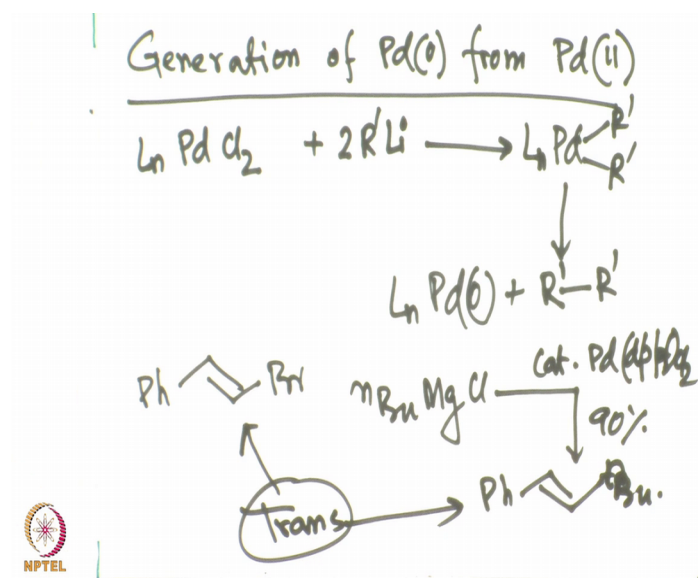 Generation of Pd(0) from Pd(11)
Ln Pd Cl2 + 2R'Li → Ln Pd R' R'
Ln Pd(0) + R'—R'
Ph Br nBu Mg Cl cat. Pd
90%
Trans → Ph nBu.
NPTEL